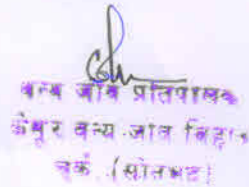 वन्य जीव प्रतिपालक
कैमूर वन्य जीव विहार
चुर्क (सोनभद्र)